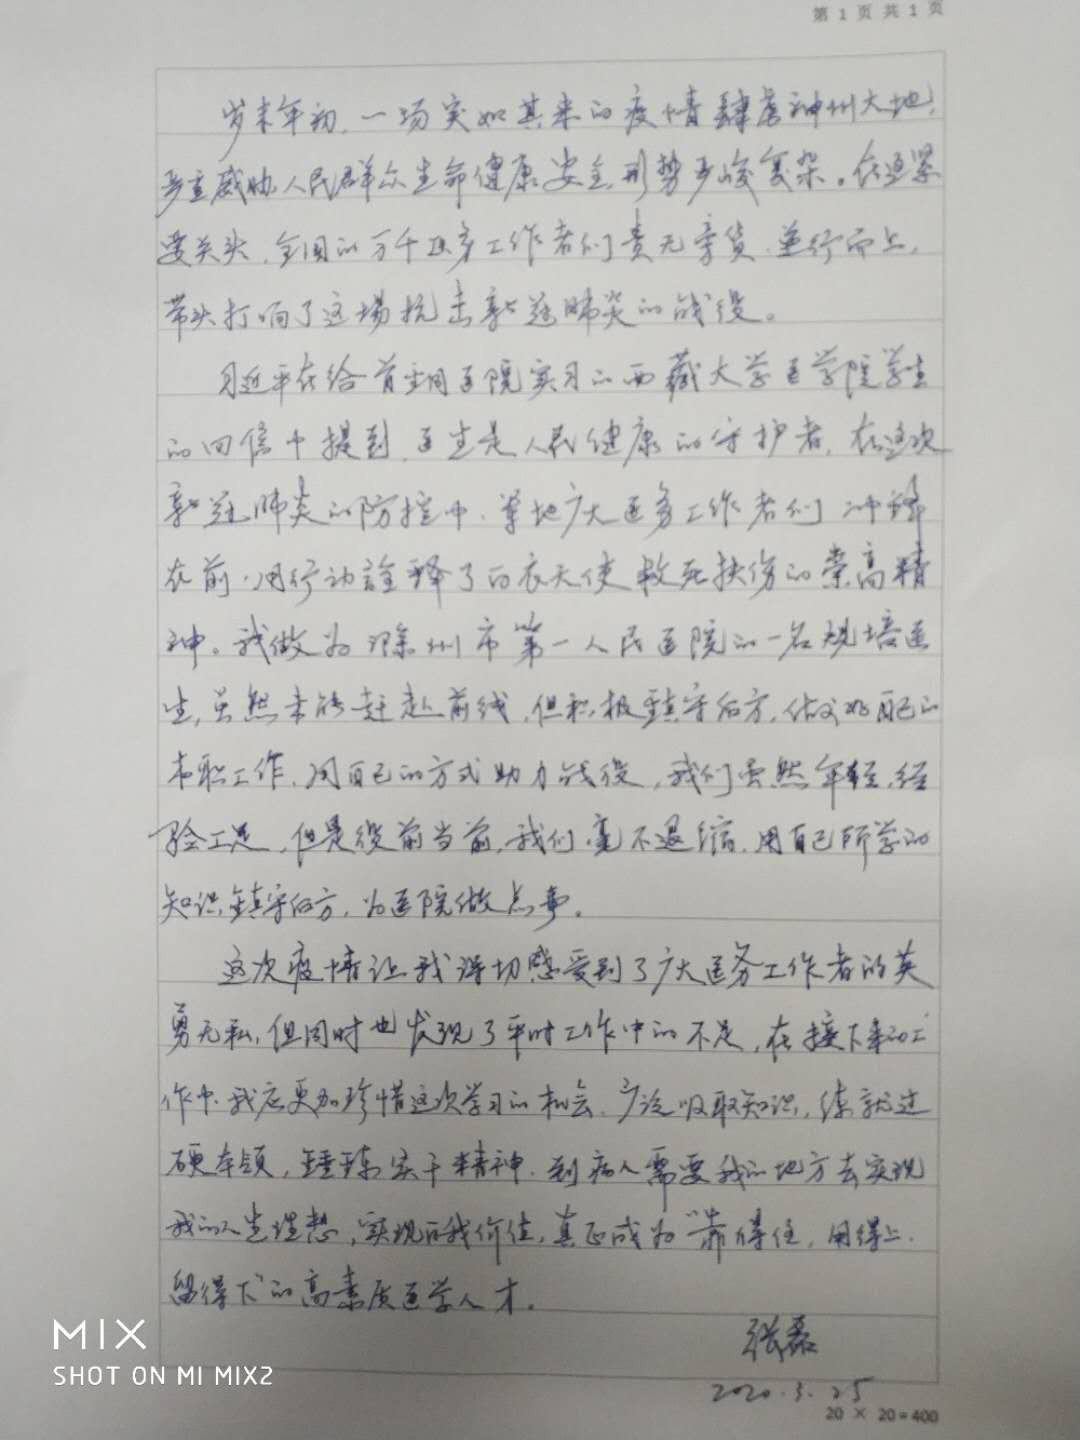 第 1 页 共 1 页
岁末年初，一场突如其来的疫情肆虐神州大地，
严重威胁人民群众生命健康安全，形势严峻复杂。在这紧
要关头，全国的万千医务工作者们责无旁贷，逆行而上，
带头打响了这场抗击新冠肺炎的战役。
习近平在给首钢医院实习的西藏大学医学院学生
的回信中提到，医生是人民健康的守护者，在这次
新冠肺炎的防控中，各地广大医务工作者们冲锋
在前，用行动诠释了白衣天使救死扶伤的崇高精
神。我做为滁州市第一人民医院的一名规培医
生，虽然未能赶赴前线，但积极镇守后方，做好自己的
本职工作，用自己的方式助力战役，我们虽然年轻，经
验不足，但是役前当前，我们毫不退缩，用自己所学的
知识镇守后方，为医院做点事。
这次疫情让我深切感受到了广大医务工作者的英
勇无私，但同时也发现了平时工作中的不足，在接下来的工
作中，我应更加珍惜这次学习的机会，广泛吸取知识，练就过
硬本领，锤炼实干精神，到病人需要我的地方去实现
我的人生理想，实现自我价值，真正成为“靠得住，用得上，
留得下”的高素质医学人才。
张磊
2020.3.25
20 × 20=400
MIX
SHOT ON MI MIX2